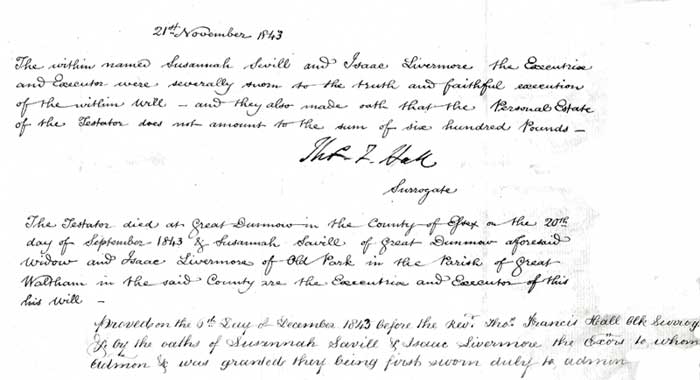 21st November 1843
The within named Susannah Savill and Isaac Livermore the Executrix
and Executor were severally sworn to the truth and faithful execution
of the within Will – and they also made oath that the Personal Estate
of the Testator does not amount to the sum of six hundred Pounds –
Thos. F. Hall
Surrogate
The Testator died at Great Dunmow in the County of Essex on the 20th
day of September 1843 & Susannah Savill of Great Dunmow aforesaid
Widow and Isaac Livermore of Old Park in the Parish of Great
Waltham in the said County are the Executrix and Executor of this
his Will –
Proved on the 6th Day of December 1843 before the Revd. Thos. Francis Hall Clk Surrog
&c by the oaths of Susannah Savill & Isaac Livermore the Exors to whom
Admon & was granted they being first sworn duly to admin